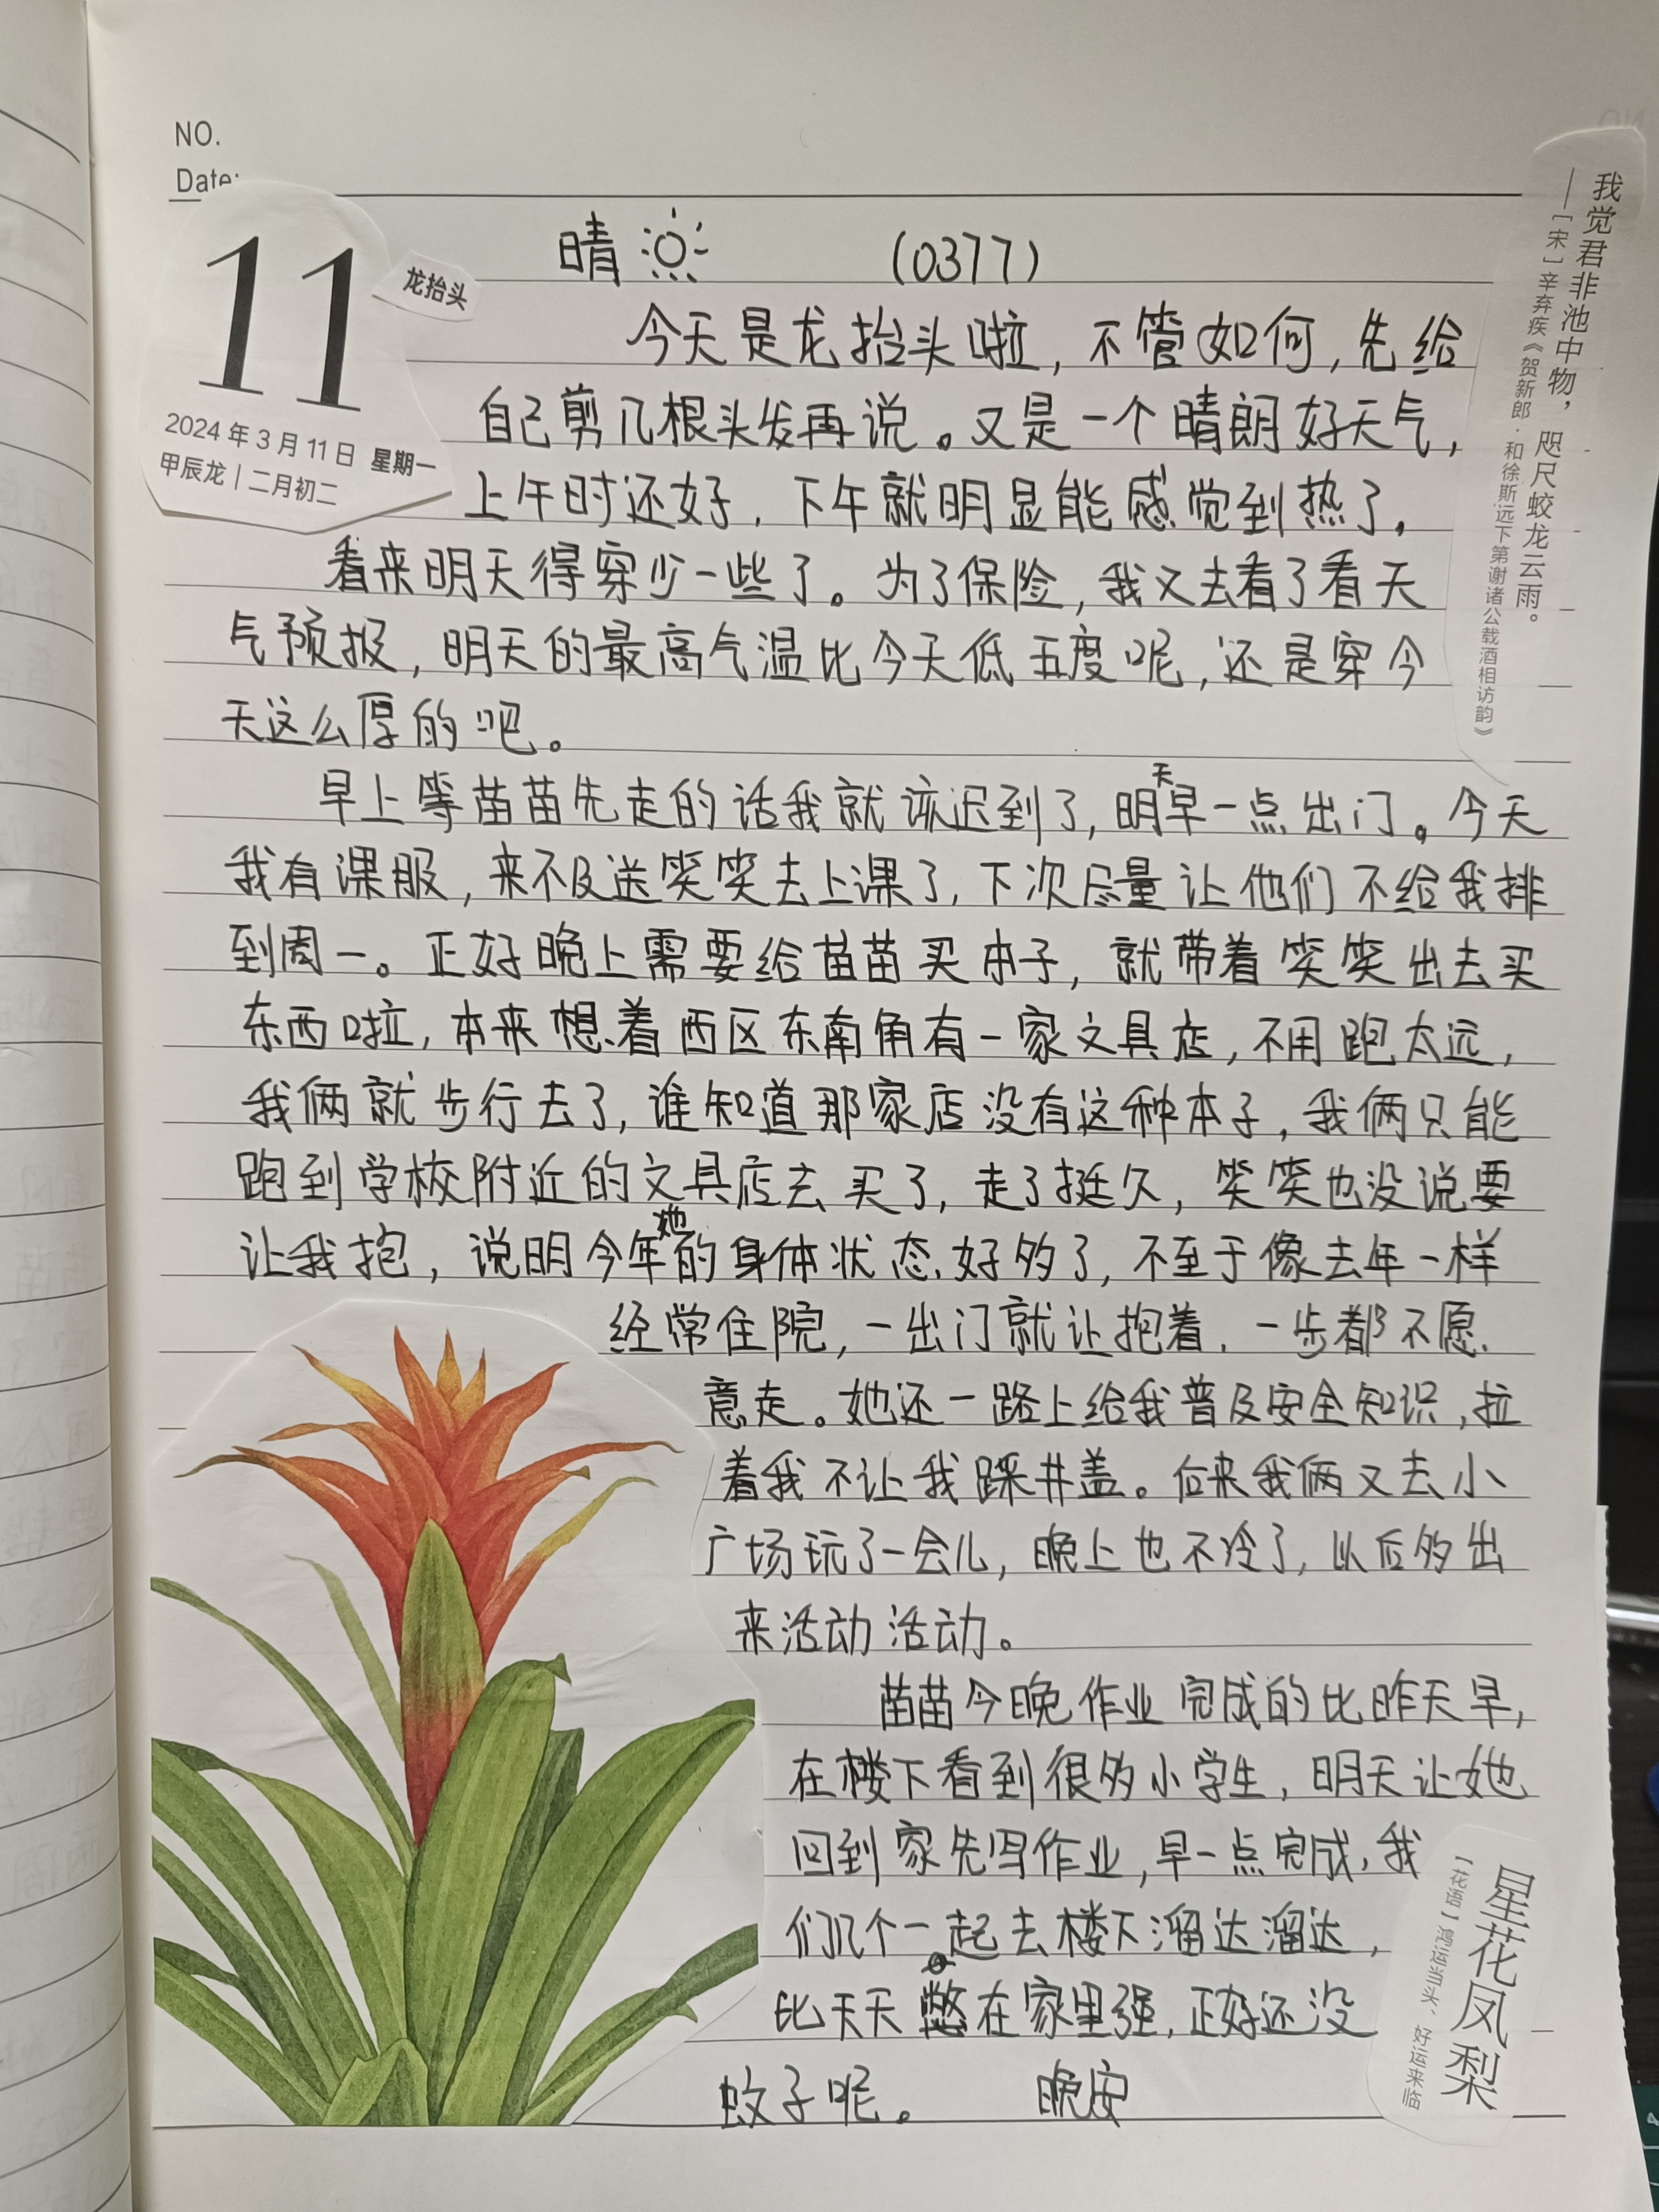 NO.
Date:
11
龙抬头
2024年3月11日 星期一
甲辰龙｜二月初二
我觉君非池中物，咫尺蛟龙云雨。
——［宋］辛弃疾《贺新郎·和徐斯远下第谢诸公载酒相访韵》
晴 (0377)
今天是龙抬头啦，不管如何，先给
自己剪几根头发再说。又是一个晴朗好天气，
上午时还好，下午就明显能感觉到热了，
看来明天得穿少一些了。为了保险，我又去看了看天
气预报，明天的最高气温比今天低五度呢，还是穿今
天这么厚的吧。
早上等苗苗先走的话我就该迟到了，明天早一点出门。今天
我有课服，来不及送笑笑去上课了，下次尽量让他们不给我排
到周一。正好晚上需要给苗苗买本子，就带着笑笑出去买
东西啦，本来想着西区东南角有一家文具店，不用跑太远，
我俩就步行去了，谁知道那家店没有这种本子，我俩只能
跑到学校附近的文具店去买了，走了挺久，笑笑也没说要
让我抱，说明今年她的身体状态好多了，不至于像去年一样
经常住院，一出门就让抱着，一步都不愿
意走。她还一路上给我普及安全知识，拉
着我不让我踩井盖。后来我俩又去小
广场玩了一会儿，晚上也不冷了，以后多出
来活动活动。
苗苗今晚作业完成的比昨天早，
在楼下看到很多小学生，明天让她
回到家先写作业，早一点完成，我
们几个一起去楼下溜达溜达，
比天天憋在家里强，正好还没
蚊子呢。 晚安
星花凤梨
【花语】鸿运当头、好运来临